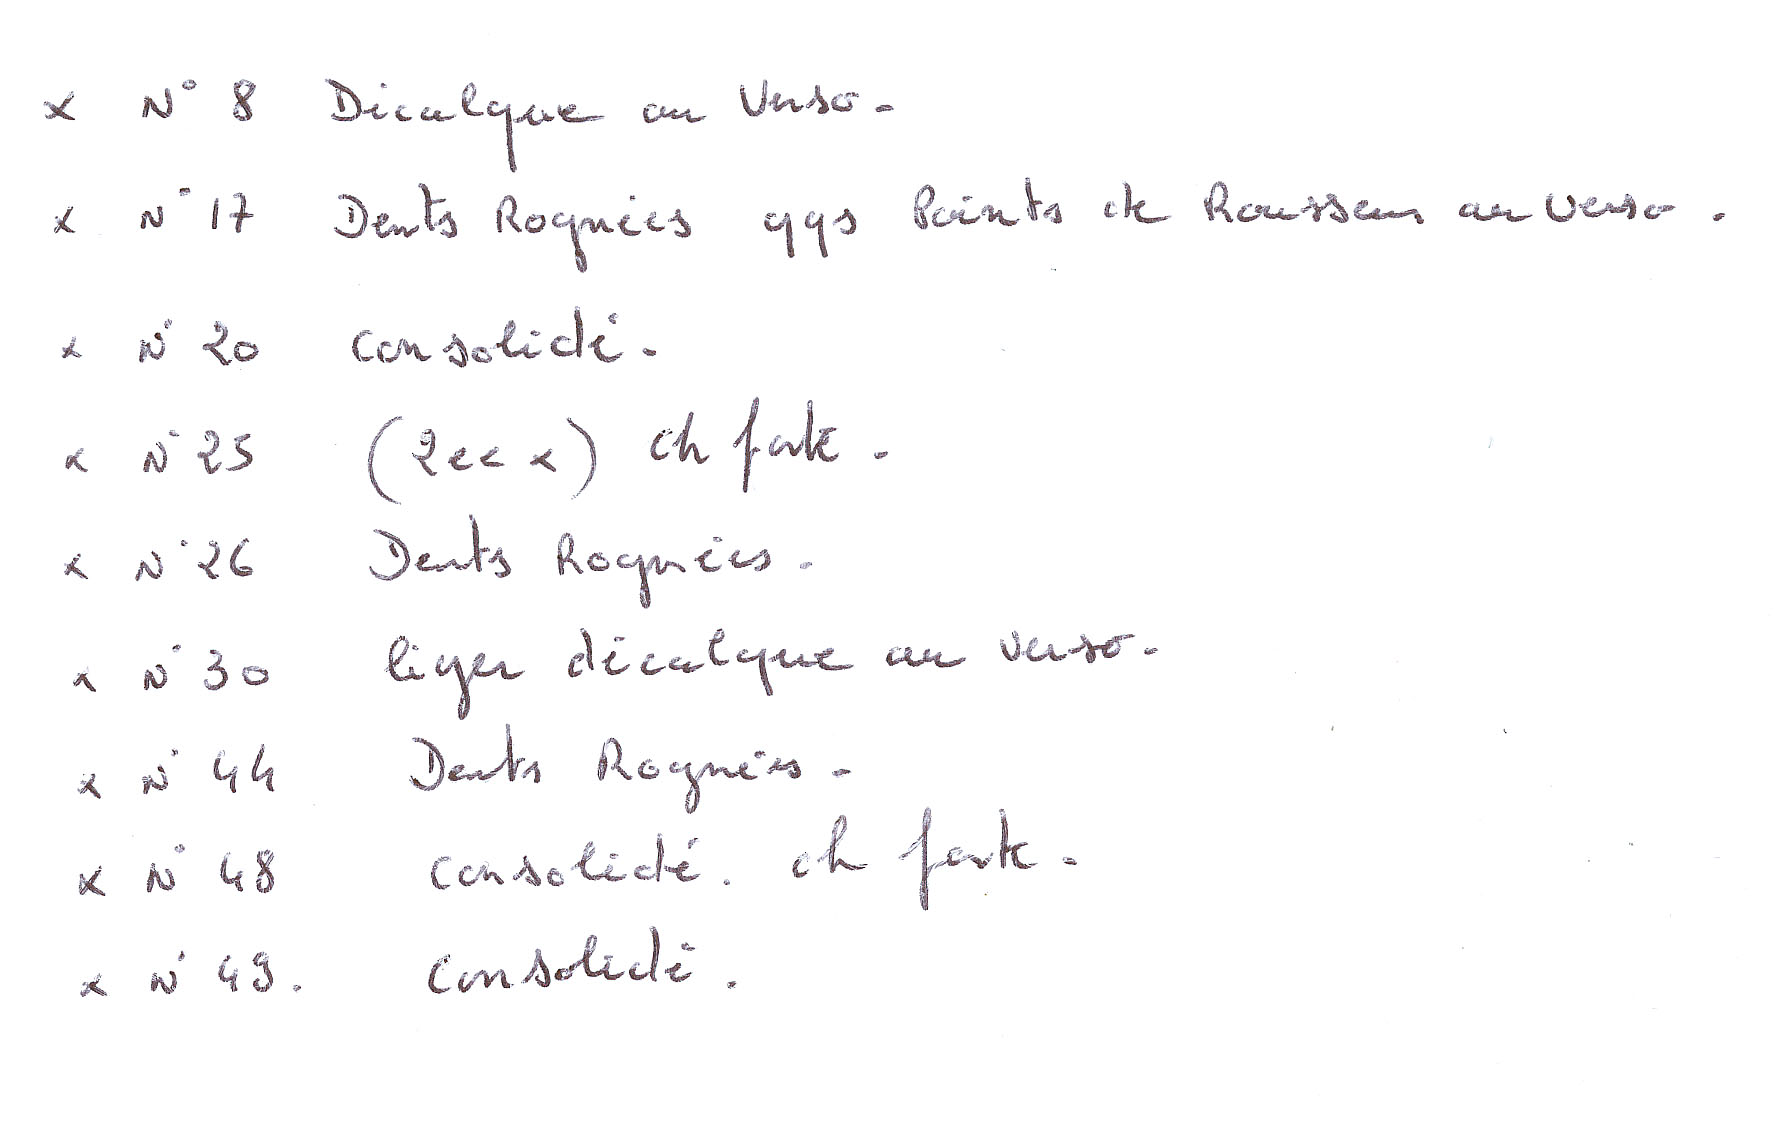 x N° 8 Décalque au Verso.
x N° 17 Dents Rognées qqs Points de Rousseur au Verso.
x N° 20 consolidé.
x N° 25 (2ec x) ch forte.
x N° 26 Dents Rognées.
x N° 30 léger décalque au verso.
x N° 44 Dents Rognées.
x N° 48 consolidé. ch forte.
x N° 49. consolidé.